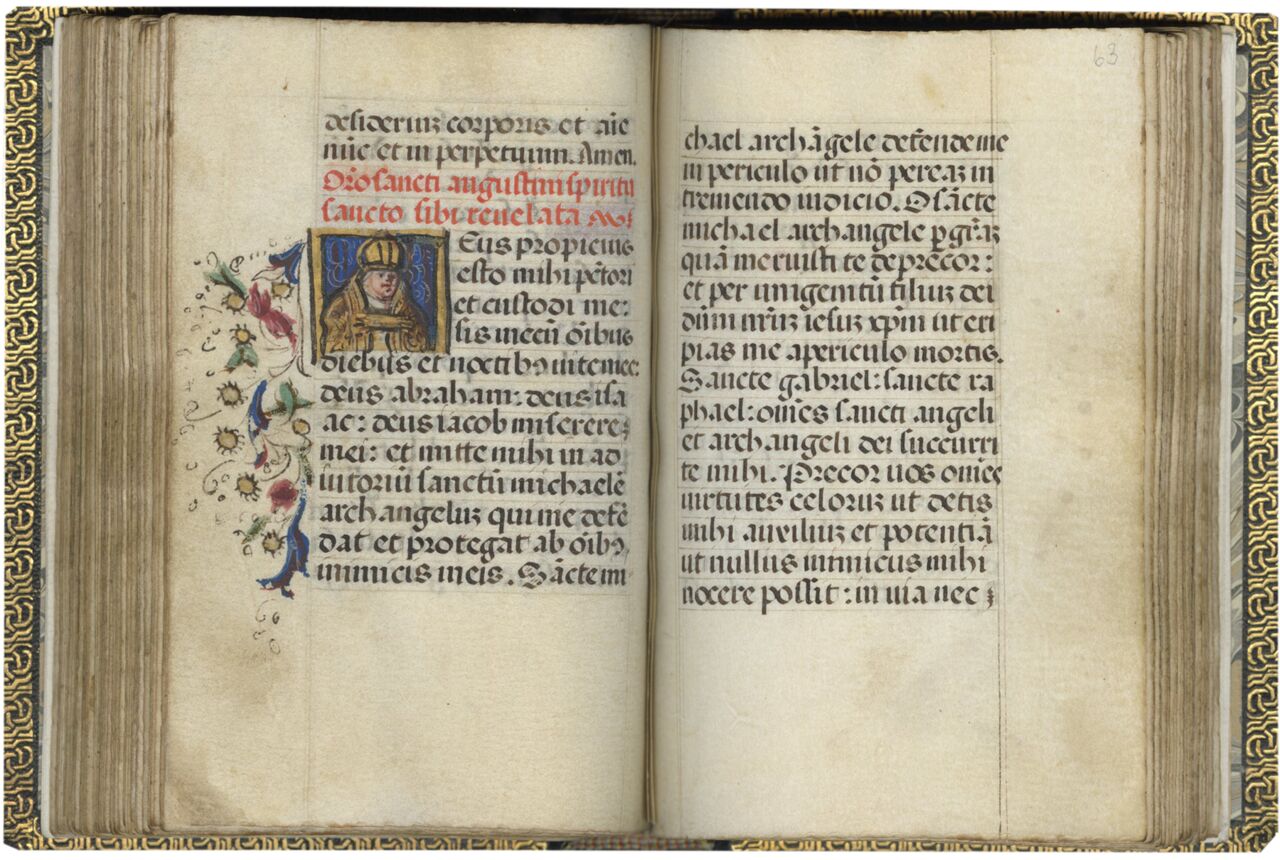 desideriuʒ corporis et aīe
nūc et in perpetuum. Amen.
Orō sancti augustini spiritu
sancto sibi reuelata
Eus propicius
esto mihi pctōri
et custodi me:
sis mecū oībus
diebus et noctibꝰ uite mee:
deus abraham: deus isa
ac: deus iacob miserere
mei: et mitte mihi in ad
iutoriū sanctū michaelē
archangeluʒ qui me defē
dat et protegat ab oībꝰ
inimicis meis. Sācte mi
63
chael archāgele defende me
in periculo ut nō pereaʒ in
tremendo iudicio. O sācte
michael archangele ꝑ gr̄aʒ
quā meruisti te deprecor:
et per unigenitū filiuʒ dei
dūm nr̄uʒ iesuʒ xp̄m ut eri
pias me a periculo mortis.
Sancte gabriel: sancte ra
phael: om̄es sancti angeli
et archangeli dei succurri
te mihi. Precor uos om̄es
uirtutes celoruʒ ut detis
mihi auxiliuʒ et potentiā
ut nullus inimicus mihi
nocere possit: in uia nec